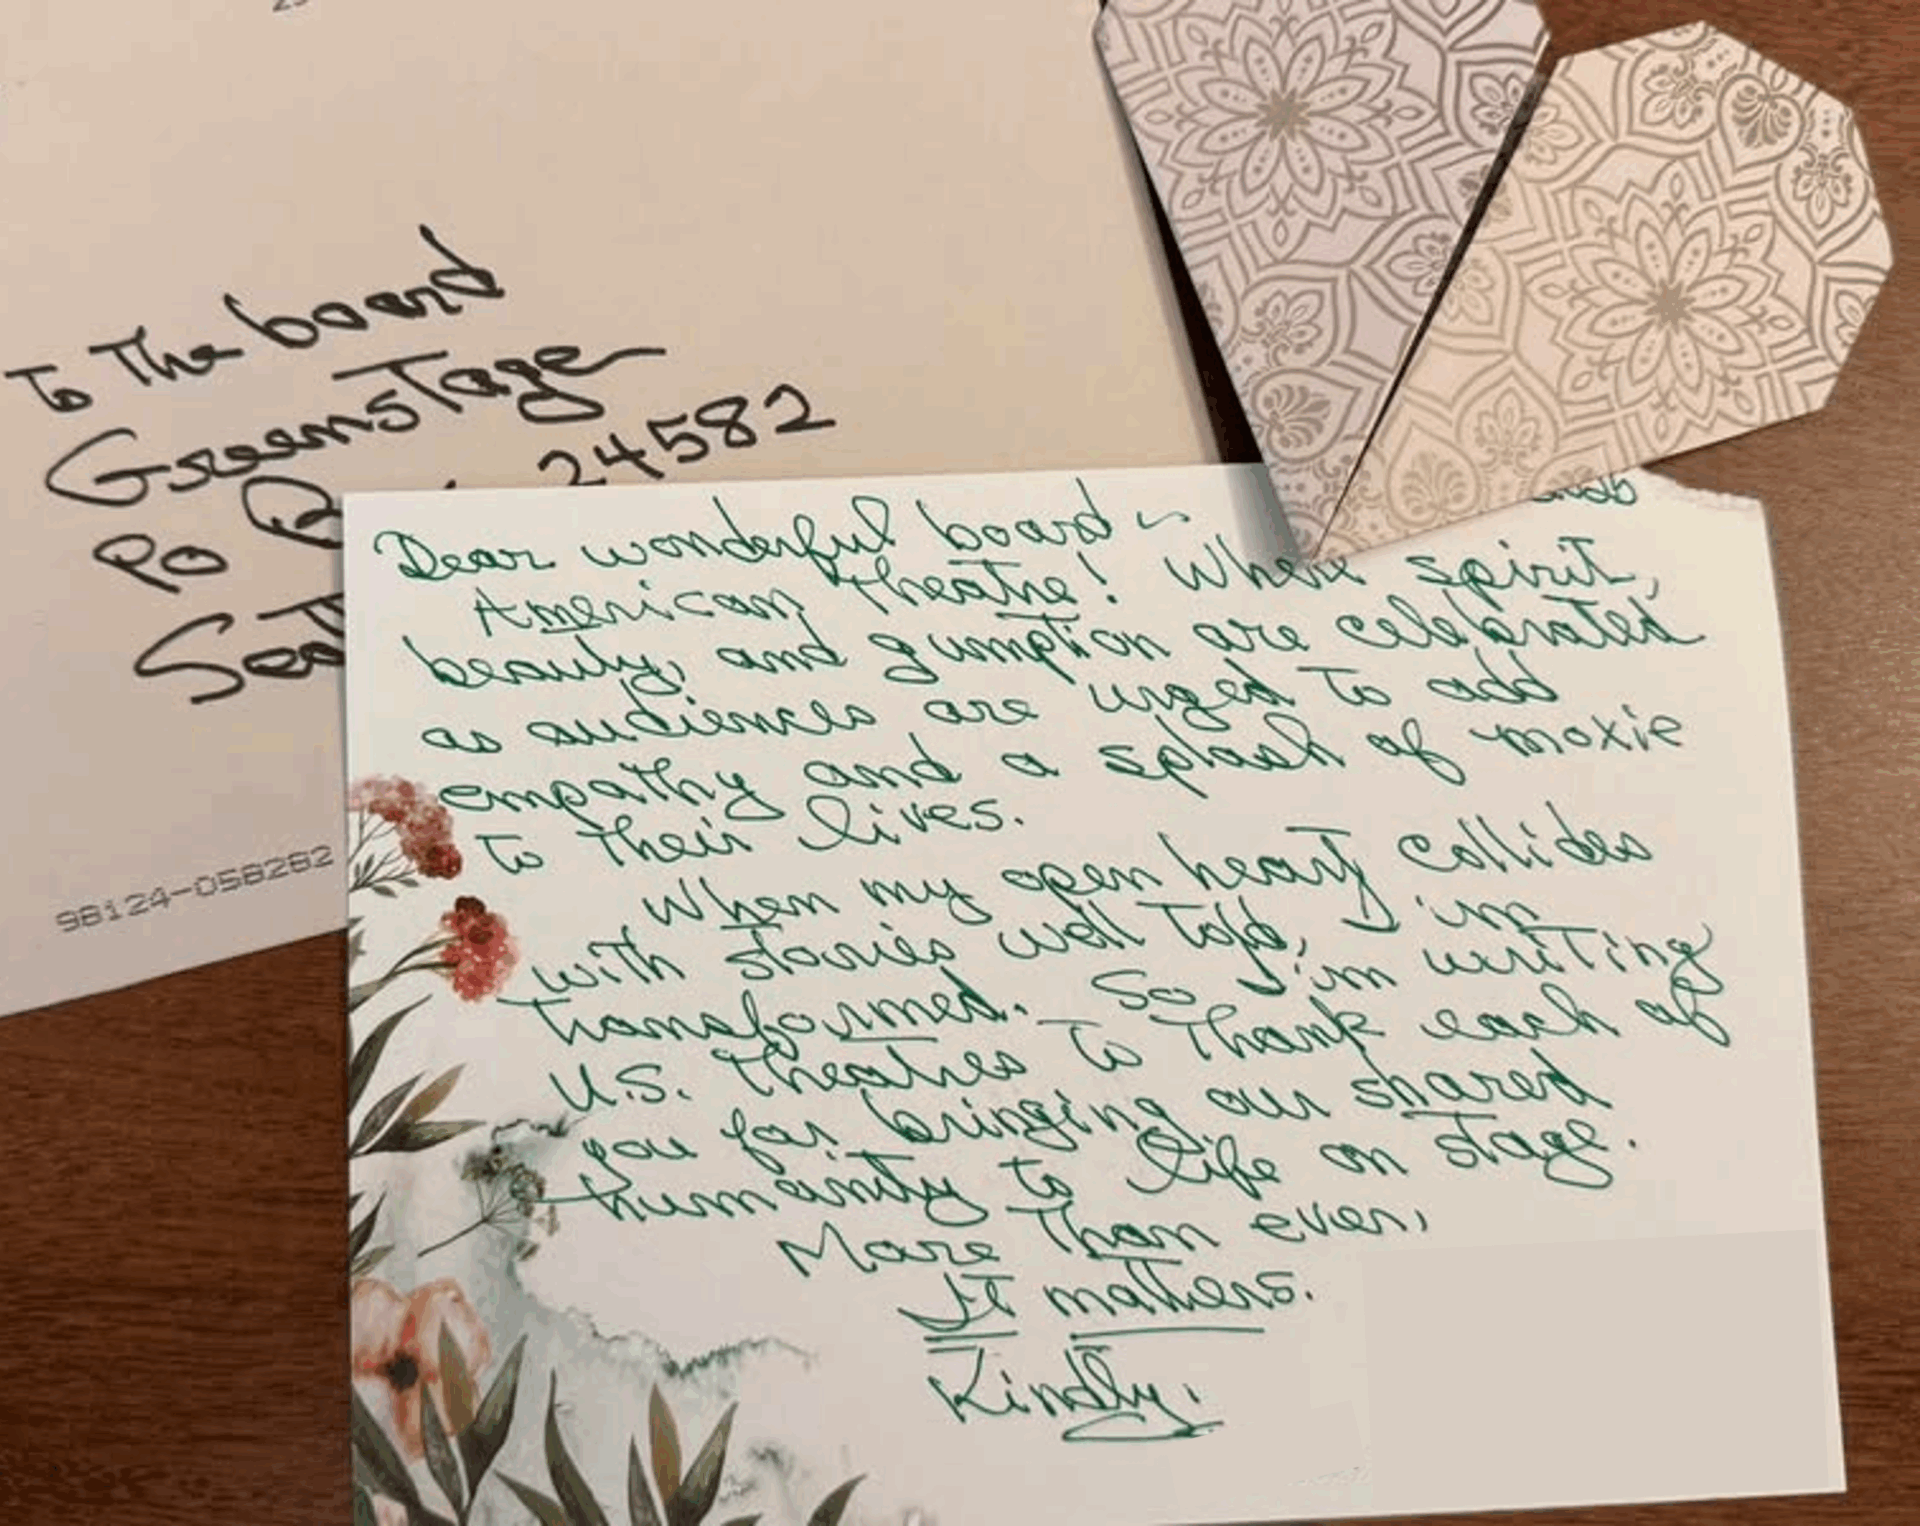 To the board
Greenstage
PO 24582
98124-058282
Dear wonderful board ~
American Theatre! Where spirit,
beauty, and gumption are celebrated
as audiences are urged to add
empathy and a splash of moxie
to their lives.
When my open heart collides
with stories well told, I'm
transformed. So I'm writing
U.S. theatres to thank each of
you for bringing our shared
humanity to life on stage.
More than ever,
It matters.
Kindly,